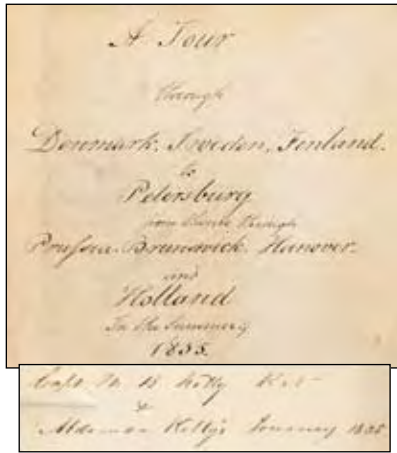 A Tour
through
Denmark, Sweden, Finland.
to
Petersburg
from thence through
Prussia. Brunswick. Hanover.
and
Holland
In the Summer of
1835.
Capt. Kelly
&
Alderman Kelly's Journey 1835